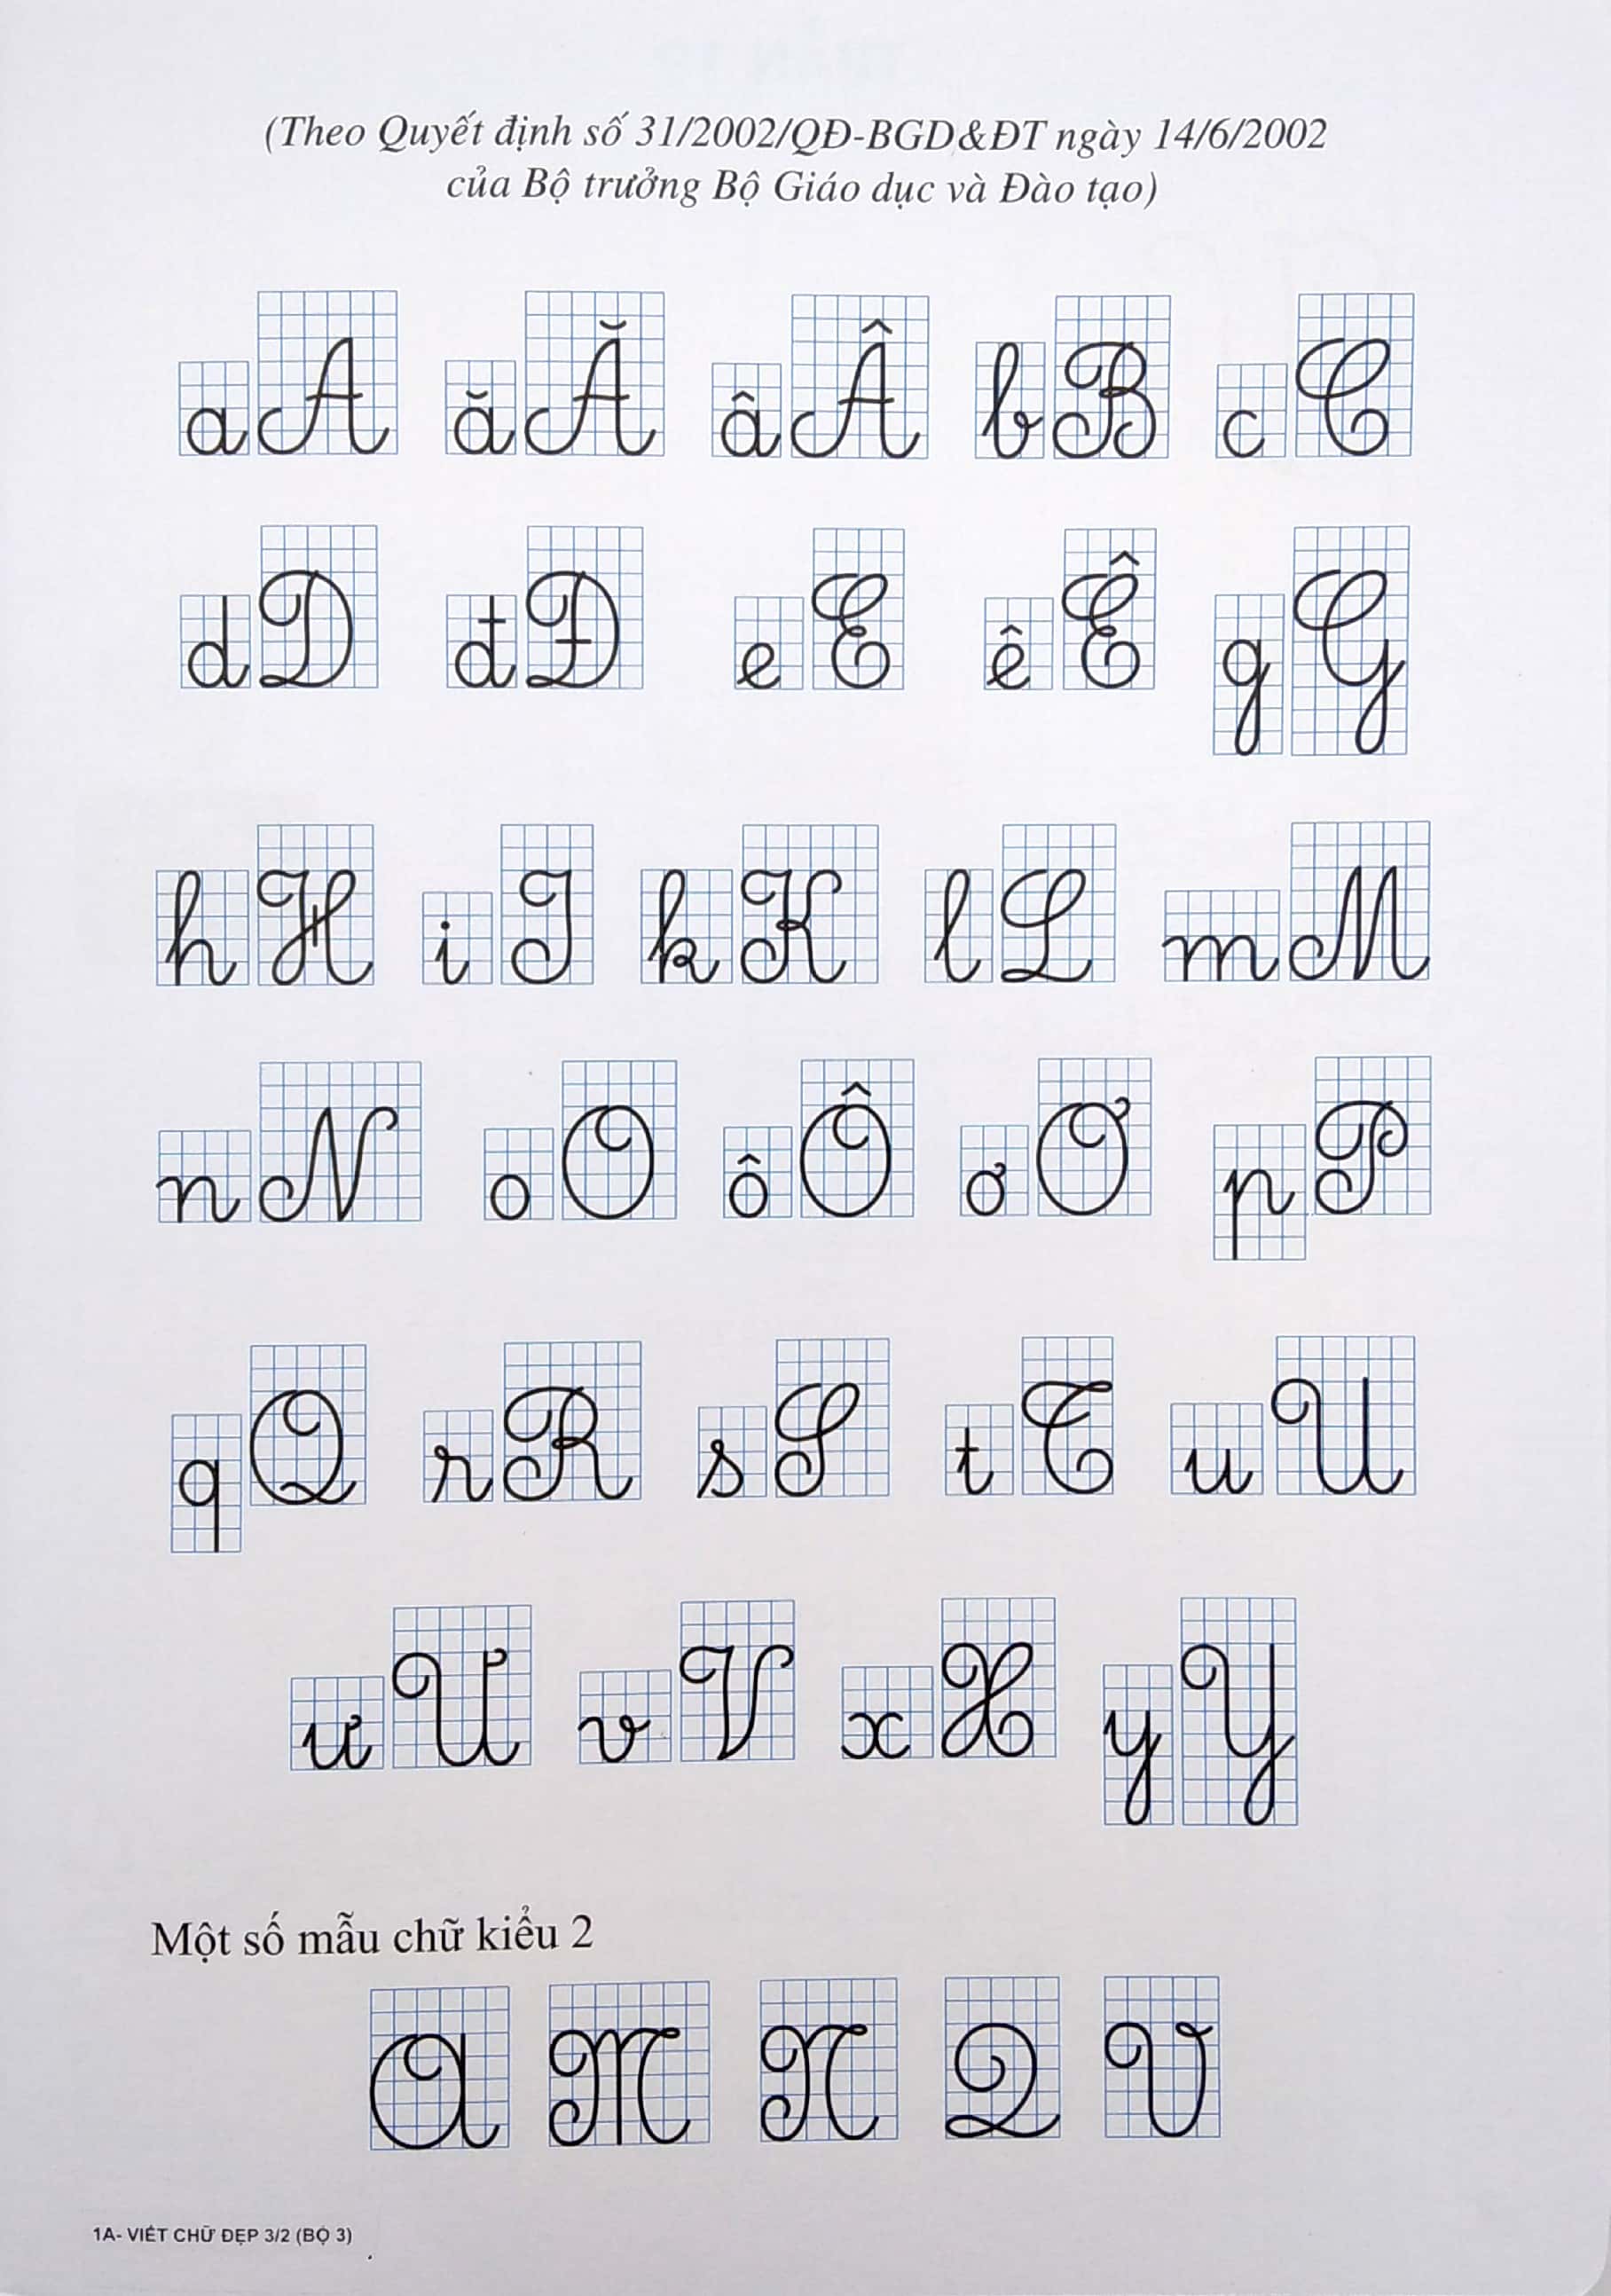 (Theo Quyết định số 31/2002/QĐ-BGD&ĐT ngày 14/6/2002
của Bộ trưởng Bộ Giáo dục và Đào tạo)
a A ă Ă â Â b B c C
d D đ Đ e E ê Ê g G
h H i I k K l L m M
n N o O ô Ô ơ Ơ p P
q Q r R s S t T u U
ư Ư v V x X y Y
Một số mẫu chữ kiểu 2
A M N Q V
1A- VIẾT CHỮ ĐẸP 3/2 (BỘ 3)